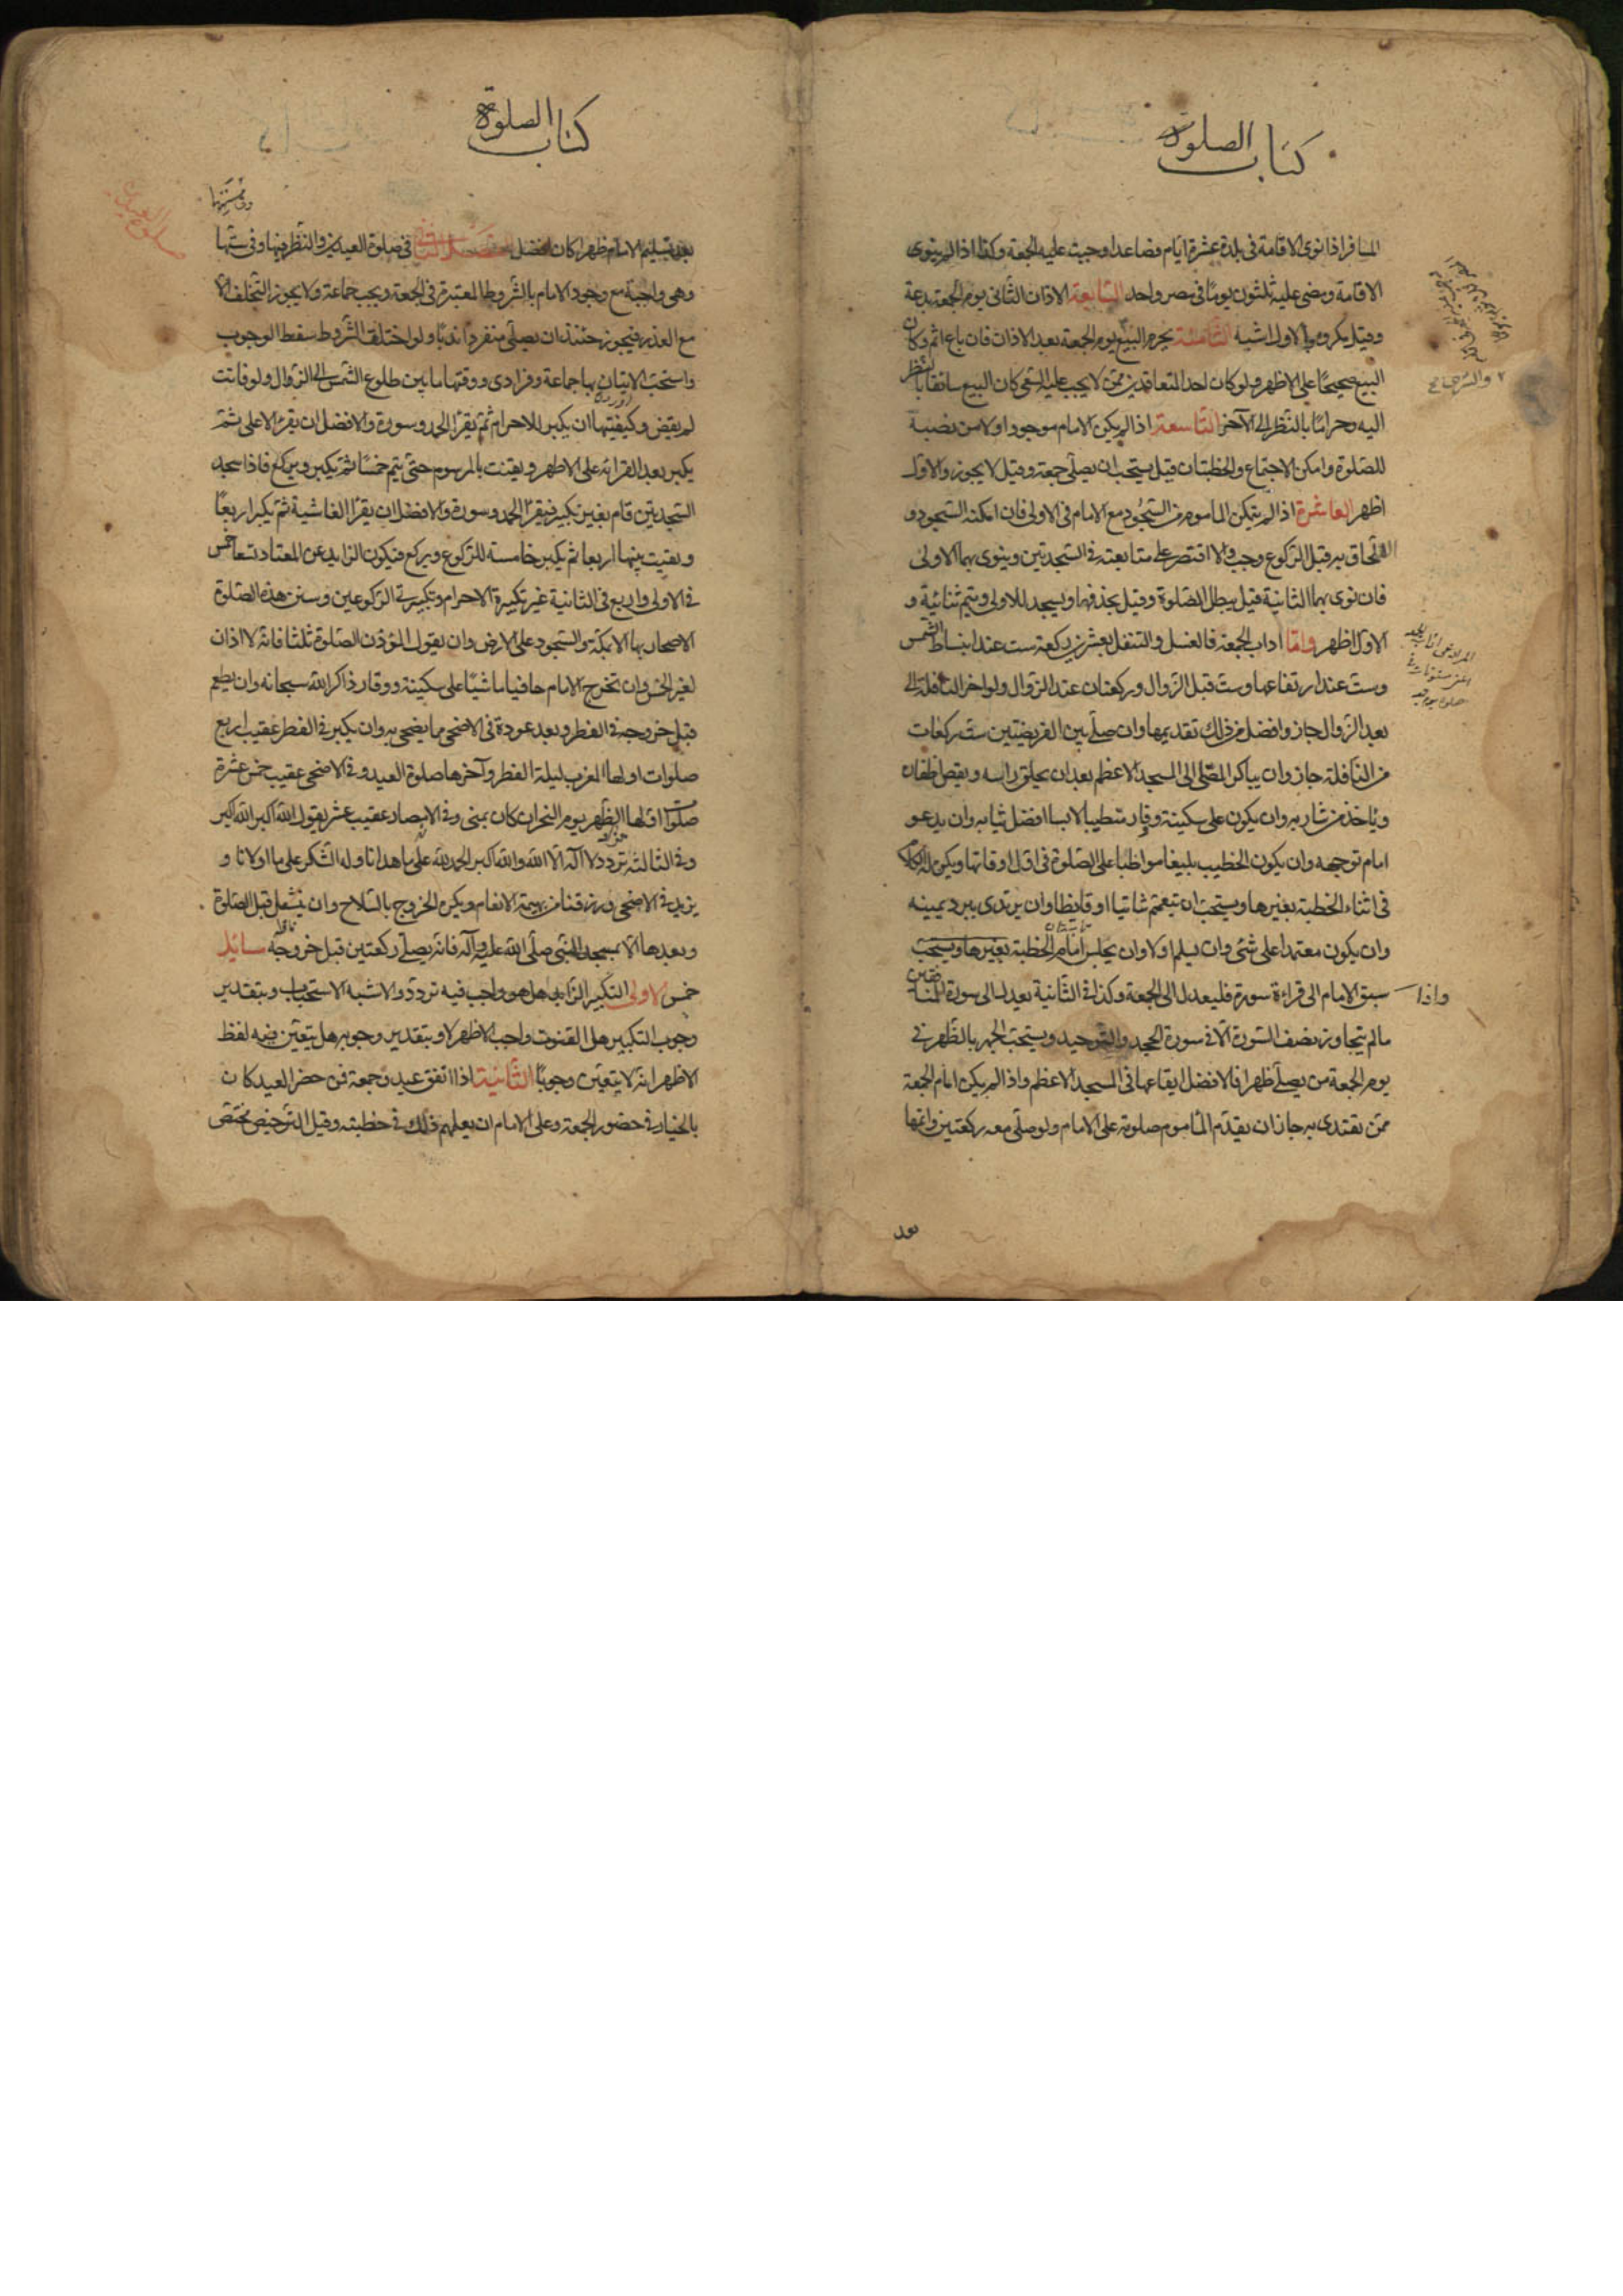 كتاب الصلوة
المسافر اذا نوى الاقامة فى بلدة عشرة ايام فصاعدا وجبت عليه الجمعة وكذا اذا لم ينوى
الاقامة ومضى عليه ثلثون يوما فى مصر واحد السابعة الاذان الثانى يوم الجمعة بدعة
وقيل يكروه والاول اشبه الثامنة يحرم البيع يوم الجمعة بعد الاذان فان باع اثم وكان
البيع صحيحا على الاظهر ولو كان احد المتعاقدين ممن لا يجب عليه السعى كان البيع سائغا بالنظر
اليه وحراما بالنظر الى الآخر التاسعة اذا لم يكن الامام موجودا ولا من نصبه
للصلوة وامكن الاجتماع والخطبتان قيل يستحب ان يصلى جمعة وقيل لا يجوز والاول
اظهر العاشرة اذا لم يتمكن الماموم من السجود مع الامام فى الاولى فان امكنه السجود و
اللحاق به قبل الركوع وجب والا اقتصر على متابعته فى السجدتين وينوى بهما الاولى
فان نوى بهما الثانية قيل يبطل الصلوة وقيل يحذفهما ويسجد للاولى ويتم ثنائية و
الاول اظهر واما اداب الجمعة فالغسل والتنفل بعشرين ركعة ست عند انبساط الشمس
وست عند ارتفاعها وست قبل الزوال وركعتان عند الزوال ولو اخر النافلة الى
بعد الزوال جاز وافضل من ذلك تقديمها وان صلى بين الفريضتين ست ركعات
من النافلة جاز وان يباكر المصلى الى المسجد الاعظم بعد ان يحلق راسه ويقص اظفاره
وياخذ من شاربه وان يكون على سكينة ووقار متطيبا لابسا افضل ثيابه وان يدعو
امام توجهه وان يكون الخطيب بليغا مواظبا على الصلوة فى اول اوقاتها ويكره له الكلام
فى اثناء الخطبة بغيرها ويستحب ان يتعمم شاتيا او قايظا وان يرتدى ببرد يمينه
وان يكون معتمدا على شئ وان يسلم اولا وان يجلس امام الخطبة بغيرها ويستحب
واذا سبق الامام الى قراءة سورة فليعدل الى الجمعة وكذا فى الثانية يعدل الى سورة المنافقين
ما لم يتجاوز نصف السورة الا فى سورة الجحد والتوحيد ويستحب الجهر بالظهر فى
يوم الجمعة من يصلى ظهرا فالافضل ايقاعها فى المسجد الاعظم واذا لم يكن امام الجمعة
ممن يقتدى به جاز ان يقدم الماموم صلوته على الامام ولو صلى معه ركعتين واتمها
بعد
كتاب الصلوة
صلوة العيدين
بعد تسليم الامام ظهرا كان افضل فى صلوة العيدين والنظر فيها وفى سننها
وهى واجبة مع وجود الامام بالشروط المعتبرة فى الجمعة ويجب جماعة ولا يجوز التخلف الا
مع العذر فيجوز حينئذ ان يصلى منفردا ندبا ولو اختلت الشروط سقط الوجوب
واستحب الاتيان بها جماعة وفرادى ووقتها ما بين طلوع الشمس الى الزوال ولو فاتت
لم يقض وكيفيتها ان يكبر للاحرام ثم يقرأ الحمد وسورة والافضل ان يقرء الاعلى ثم
يكبر بعد القرائة على الاظهر ويقنت بالمرسوم حتى يتم خمسا ثم يكبر ويركع فاذا سجد
السجدتين قام بغير تكبير فيقرأ الحمد وسورة والافضل ان يقرأ الغاشية ثم يكبر اربعا
ويقنت بينها اربعا ثم يكبر خامسة للركوع ويركع فيكون الزايد عن المعتاد تسعا خمس
فى الاولى واربع فى الثانية غير تكبيرة الاحرام وتكبيرتى الركوعين وسنن هذه الصلوة
الاصحار بها الا بمكة والسجود على الارض وان يقول المؤذن الصلوة ثلثا فانه لا اذان
لغير الخمس وان يخرج الامام حافيا ماشيا على سكينة ووقار ذاكرا لله سبحانه وان يطعم
قبل خروجه فى الفطر وبعد عوده فى الاضحى مما يضحى به وان يكبر فى الفطر عقيب اربع
صلوات اولها المغرب ليلة الفطر وآخرها صلوة العيد وفى الاضحى عقيب خمس عشرة
صلوات اولها الظهر يوم النحر ان كان بمنى وفى الامصار عقيب عشر يقول الله اكبر الله اكبر
وفى الثالثة تردد لا اله الا الله والله اكبر الحمد لله على ما هدانا وله الشكر على ما اولانا و
يزيد فى الاضحى ورزقنا من بهيمة الانعام ويكره الخروج بالسلاح وان ينتفل قبل الصلوة
وبعدها الا بمسجد النبى صلى الله عليه وآله فانه يصلى ركعتين قبل خروجه مسائل
خمس الاولى التكبير الزايد هل هو واجب فيه تردد والاشبه الاستحباب وبتقدير
وجوب التكبير هل القنوت واجب الاظهر لا وبتقدير وجوبه هل يتعين فيه لفظ
الاظهر انه لا يتعين وجوبا الثانية اذا اتفق عيد وجمعة فمن حضر العيد كان
بالخيار فى حضور الجمعة وعلى الامام ان يعلمهم ذلك فى خطبته وقيل الترخيص مختص